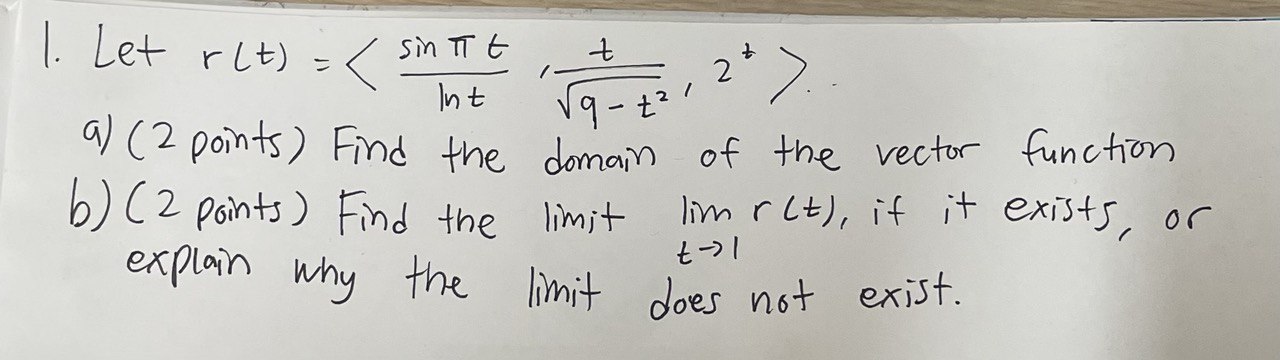 1. Let r(t) = < sin π t / ln t , t / √9 - t² , 2^t > .
a) (2 points) Find the domain of the vector function
b) (2 points) Find the limit lim t→1 r(t), if it exists, or
explain why the limit does not exist.